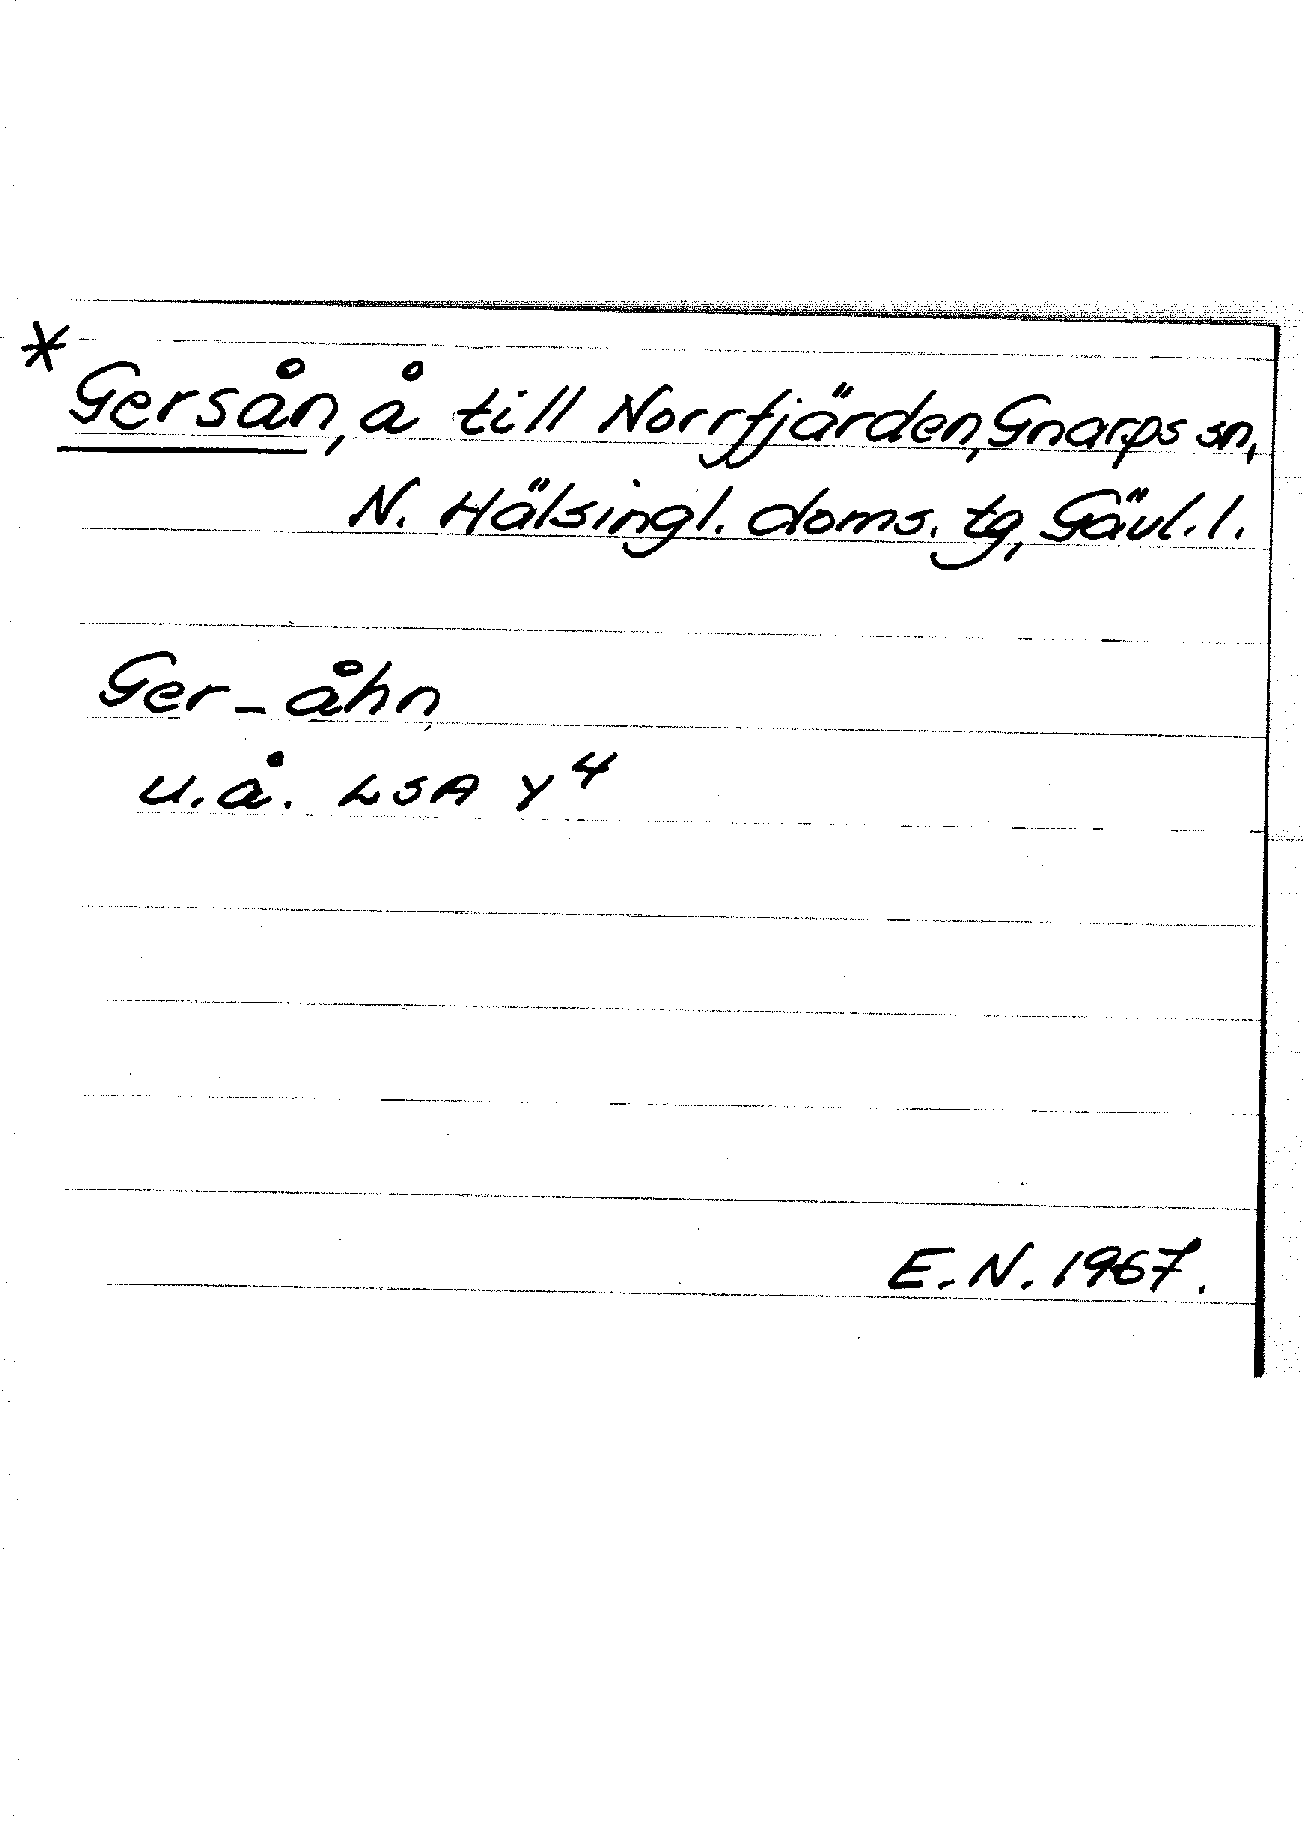 * Gersån, å till Norrfjärden, Gnarps sn,
N. Hälsingl. doms. tg, Gävl. l.
Ger-åhn
u.å. LSA Y4
E.N. 1967.